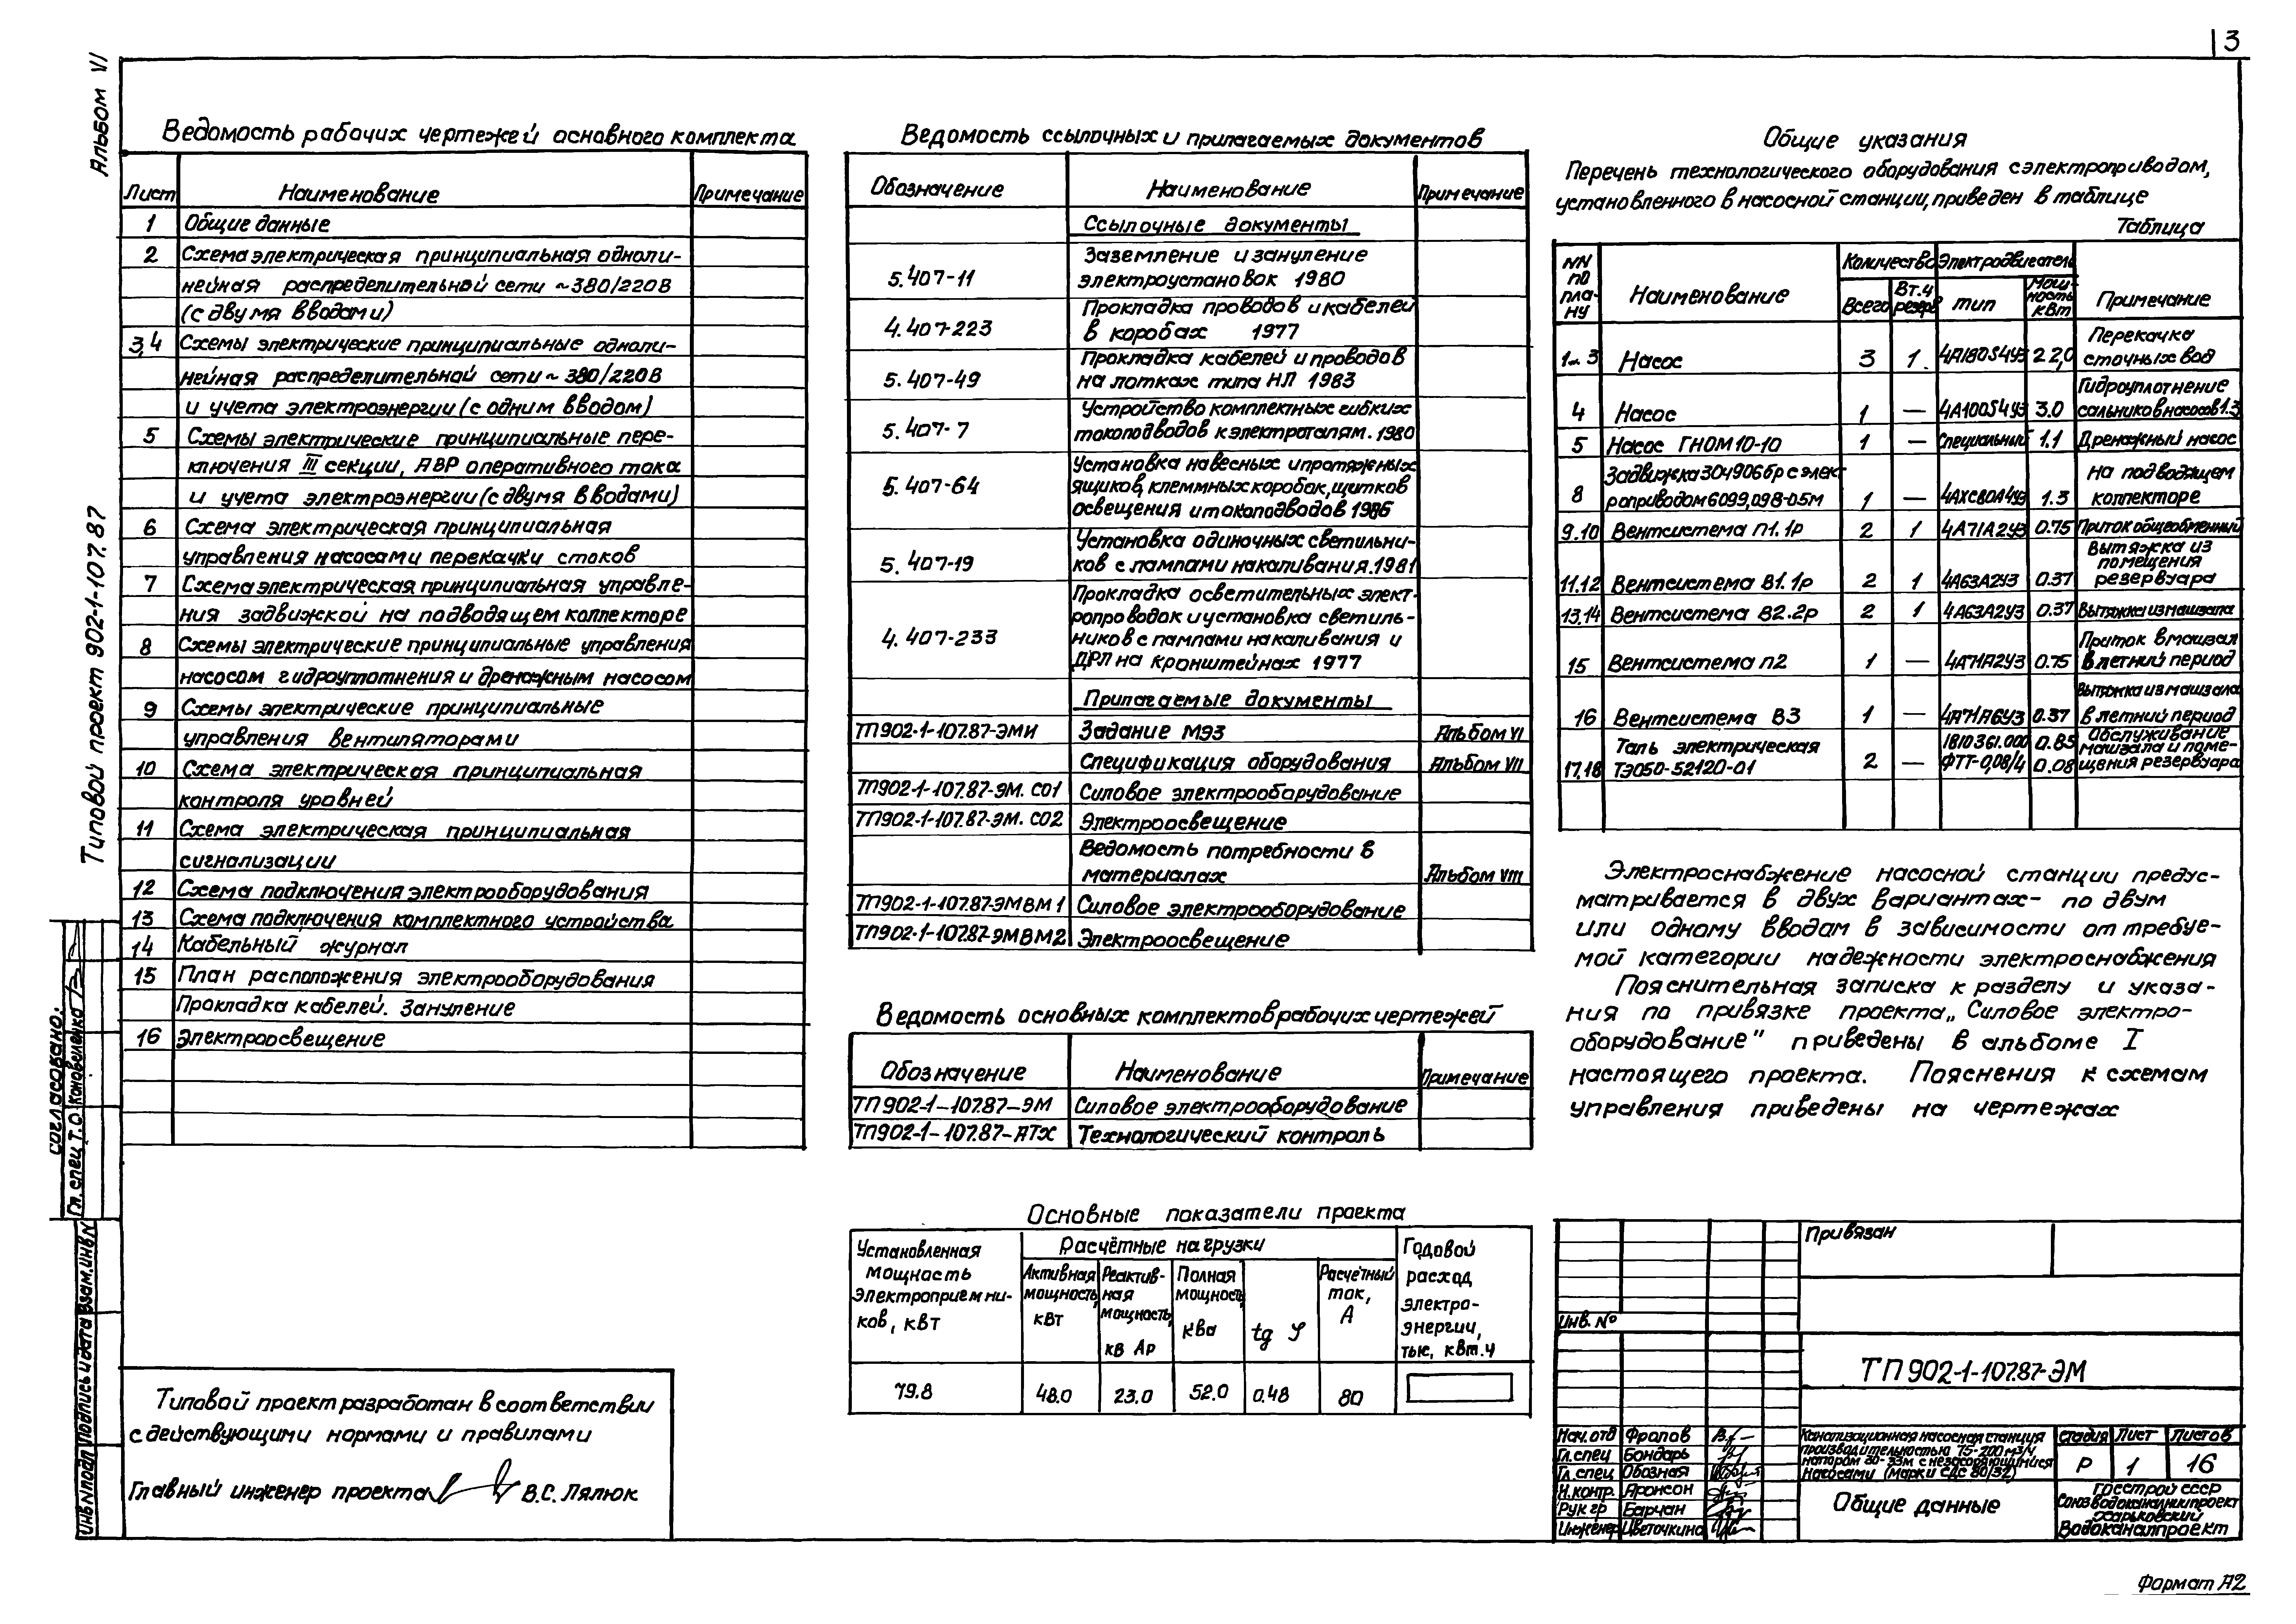 3
Альбом VI
Типовой проект 902-1-107.87
Ведомость рабочих чертежей основного комплекта
Лист Наименование Примечание
1 Общие данные
2 Схема электрическая принципиальная одноли-
нейная распределительной сети ~380/220В
(с двумя вводами)
3,4 Схемы электрические принципиальные одноли-
нейная распределительной сети ~ 380/220В
и учета электроэнергии (с одним вводом)
5 Схемы электрические принципиальные пере-
ключения III секции, АВР оперативного тока
и учета электроэнергии (с двумя вводами)
6 Схема электрическая принципиальная
управления насосами перекачки стоков
7 Схема электрическая принципиальная управле-
ния задвижкой на подводящем коллекторе
8 Схемы электрические принципиальные управления
насосом гидроуплотнения и дренажным насосом
9 Схемы электрические принципиальные
управления вентиляторами
10 Схема электрическая принципиальная
контроля уровней
11 Схема электрическая принципиальная
сигнализации
12 Схема подключения электрооборудования
13 Схема подключения комплектного устройства
14 Кабельный журнал
15 План расположения электрооборудования
Прокладка кабелей. Зануление
16 Электроосвещение
Типовой проект разработан в соответствии
с действующими нормами и правилами
Главный инженер проекта В.С. Лялюк
Согласовано:
Гл. спец Т.О. Коноваленко
Взам.инв.N
Подпись и дата
Инв.N подл
Ведомость ссылочных и прилагаемых документов
Обозначение Наименование Примечание
Ссылочные документы
5.407-11 Заземление и зануление
электроустановок 1980
4.407-223 Прокладка проводов и кабелей
в коробах 1977
5.407-49 Прокладка кабелей и проводов
на лотках типа НЛ 1983
5.407-7 Устройство комплектных гибких
токоподводов к электроталям. 1980
5.407-64 Установка навесных и протяжных
ящиков, клеммных коробок, щитков
освещения и токоподводов 1986
5.407-19 Установка одиночных светильни-
ков с лампами накаливания.1981
4.407-233 Прокладка осветительных элект-
ропроводок и установка светиль-
ников с лампами накаливания и
ДРЛ на кронштейнах 1977
Прилагаемые документы
ТП902-1-107.87-ЭМИ Задание МЭЗ Альбом VI
Спецификация оборудования Альбом VII
ТП902-1-107.87-ЭМ. СО1 Силовое электрооборудование
ТП902-1-107.87-ЭМ. СО2 Электроосвещение
Ведомость потребности в
материалах Альбом VIII
ТП902-1-107.87-ЭМВМ1 Силовое электрооборудование
ТП902-1-107.87-ЭМВМ2 Электроосвещение
Ведомость основных комплектов рабочих чертежей
Обозначение Наименование Примечание
ТП902-1-107.87-ЭМ Силовое электрооборудование
ТП902-1-107.87-АТХ Технологический контроль
Основные показатели проекта
Установленная мощность электроприемни-ков, кВт Расчётные нагрузки Годовой расход электро-энергии, тыс, кВт.ч
Активная мощность, кВт Реактив-ная мощность, кВАр Полная мощность, кВа tg φ Расчётный ток, А
79.8 48.0 23.0 52.0 0.48 80
Общие указания
Перечень технологического оборудования с электроприводом,
установленного в насосной станции, приведен в таблице
Таблица
NN по пла-ну Наименование Количество Электродвигатель Примечание
Всего Вт.ч резерв Тип Мощ-ность кВт
1-3 Насос 3 1 4А180S4У3 22,0 Перекачка сточных вод
4 Насос 1 — 4А100S4У3 3.0 Гидроуплотнение сальников насосов 1.3
5 Насос ГНОМ10-10 1 — Специальный 1.1 Дренажный насос
8 Задвижка 30ч906бр с элект-роприводом 6099,098-05м 1 — 4АХС80А4У3 1.3 На подводящем коллекторе
9.10 Вентсистема П1.1р 2 1 4А71А2У3 0.75 Приток общеобменный
11.12 Вентсистема В1.1р 2 1 4А63А2У3 0.37 Вытяжка из помещения резервуара
13.14 Вентсистема В2.2р 2 1 4А63А2У3 0.37 Вытяжка из машзала
15 Вентсистема П2 1 — 4А71А2У3 0.75 Приток в машзал в летний период
16 Вентсистема В3 1 — 4А71А6У3 0.37 Вытяжка из машзала в летний период
17.18 Таль электрическая ТЭ050-52120-01 2 — 1810361.000 0.85 ФТТ-0,08/4 0.08 Обслуживание машзала и поме-щения резервуара
Электроснабжение насосной станции предус-
матривается в двух вариантах- по двум
или одному вводам в зависимости от требуе-
мой категории надежности электроснабжения
Пояснительная записка к разделу и указа-
ния по привязке проекта „Силовое электро-
оборудование" приведены в альбоме I
настоящего проекта. Пояснения к схемам
управления приведены на чертежах
Привязан
Инв. №
ТП 902-1-107.87-ЭМ
Нач. отд Фролов
Гл. спец Бондарь
Гл. спец Обозная
Н.контр. Аронсон
Рук гр Барчан
Инженер Цветочкина
Канализационная насосная станция
производительностью 75-200 м³/ч
напором 30-33м с незасоряющимися
насосами (марки СДС 80/32)
Стадия Лист Листов
Р 1 16
Общие данные
Госстрой СССР
Союзводоканалниипроект
Харьковский
Водоканалпроект
Формат А2